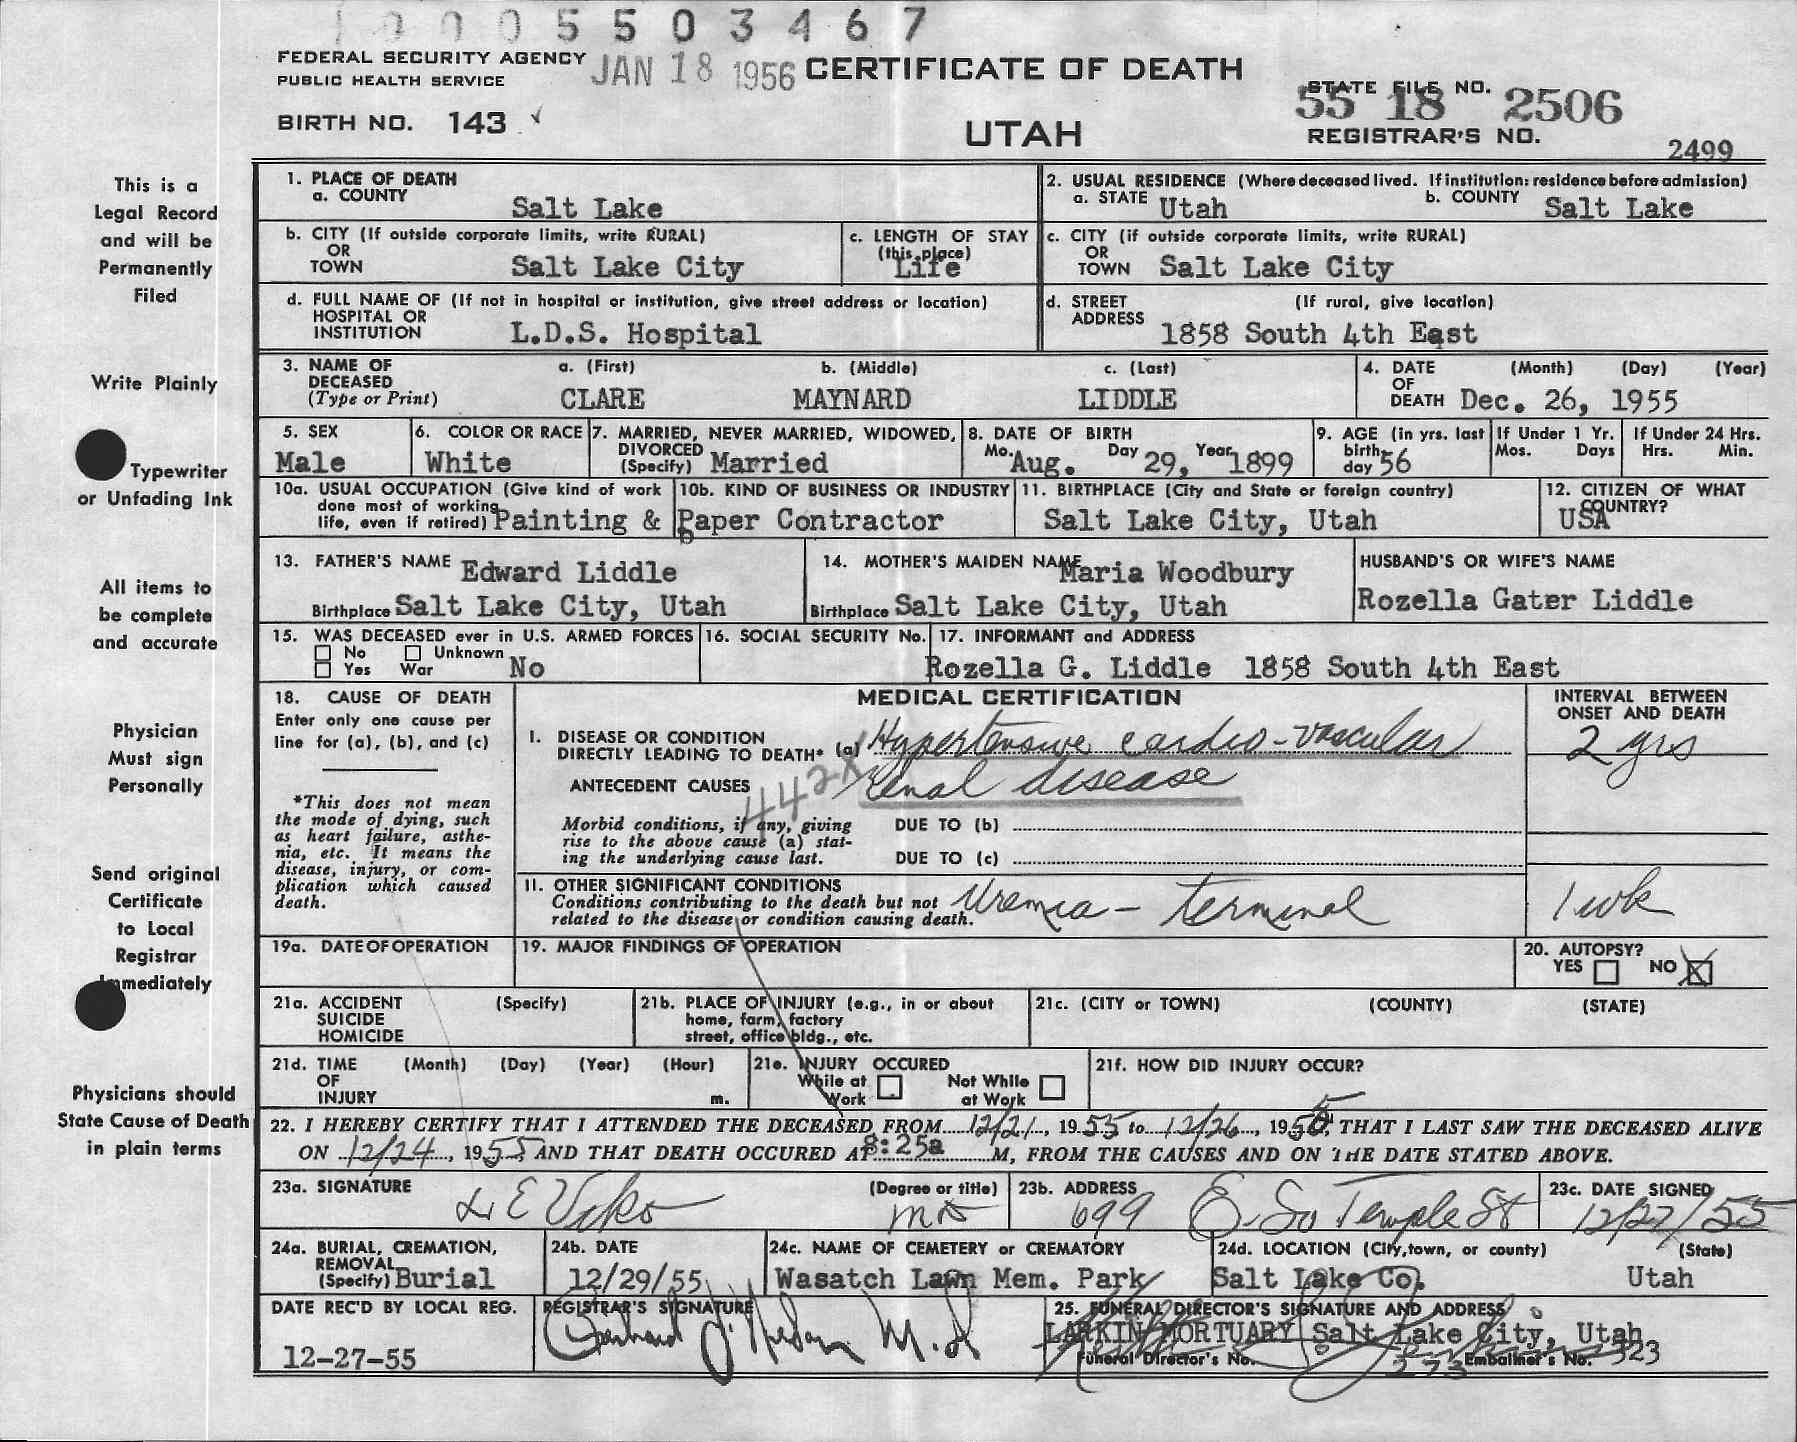 1 0 0 0 5 5 0 3 4 6 7
FEDERAL SECURITY AGENCY
PUBLIC HEALTH SERVICE
JAN 18 1956
CERTIFICATE OF DEATH
STATE FILE NO.
55 18 2506
BIRTH NO. 143
UTAH
REGISTRAR'S NO.
2499
This is a
Legal Record
and will be
Permanently
Filed
Write Plainly
Typewriter
or Unfading Ink
All items to
be complete
and accurate
Physician
Must sign
Personally
Send original
Certificate
to Local
Registrar
Immediately
Physicians should
State Cause of Death
in plain terms
1. PLACE OF DEATH
a. COUNTY Salt Lake
2. USUAL RESIDENCE (Where deceased lived. If institution: residence before admission)
a. STATE Utah b. COUNTY Salt Lake
b. CITY (If outside corporate limits, write RURAL)
OR
TOWN Salt Lake City
c. LENGTH OF STAY
(this place)
Life
c. CITY (if outside corporate limits, write RURAL)
OR
TOWN Salt Lake City
d. FULL NAME OF (If not in hospital or institution, give street address or location)
HOSPITAL OR
INSTITUTION L.D.S. Hospital
d. STREET (If rural, give location)
ADDRESS
1858 South 4th East
3. NAME OF a. (First) b. (Middle) c. (Last)
DECEASED
(Type or Print) CLARE MAYNARD LIDDLE
4. DATE (Month) (Day) (Year)
OF
DEATH Dec. 26, 1955
5. SEX
Male
6. COLOR OR RACE
White
7. MARRIED, NEVER MARRIED, WIDOWED,
DIVORCED
(Specify) Married
8. DATE OF BIRTH
Mo. Aug. Day 29, Year 1899
9. AGE (in yrs. last
birth-
day 56
If Under 1 Yr.
Mos. Days
If Under 24 Hrs.
Hrs. Min.
10a. USUAL OCCUPATION (Give kind of work
done most of working
life, even if retired) Painting &
10b. KIND OF BUSINESS OR INDUSTRY
Paper Contractor
11. BIRTHPLACE (City and State or foreign country)
Salt Lake City, Utah
12. CITIZEN OF WHAT
COUNTRY?
USA
13. FATHER'S NAME Edward Liddle
Birthplace Salt Lake City, Utah
14. MOTHER'S MAIDEN NAME Maria Woodbury
Birthplace Salt Lake City, Utah
HUSBAND'S OR WIFE'S NAME
Rozella Gater Liddle
15. WAS DECEASED ever in U.S. ARMED FORCES
No Unknown
Yes War No
16. SOCIAL SECURITY No.
17. INFORMANT and ADDRESS
Rozella G. Liddle 1858 South 4th East
18. CAUSE OF DEATH
Enter only one cause per
line for (a), (b), and (c)
*This does not mean
the mode of dying, such
as heart failure, asthe-
nia, etc. It means the
disease, injury, or com-
plication which caused
death.
MEDICAL CERTIFICATION
INTERVAL BETWEEN
ONSET AND DEATH
I. DISEASE OR CONDITION
DIRECTLY LEADING TO DEATH* (a) Hypertensive cardio-vascular
2 yrs
ANTECEDENT CAUSES
442X
renal disease
Morbid conditions, if any, giving
rise to the above cause (a) stat-
ing the underlying cause last.
DUE TO (b)
DUE TO (c)
II. OTHER SIGNIFICANT CONDITIONS
Conditions contributing to the death but not
related to the disease or condition causing death.
Uremia - terminal
1 wk
19a. DATE OF OPERATION
19. MAJOR FINDINGS OF OPERATION
20. AUTOPSY?
YES NO X
21a. ACCIDENT (Specify)
SUICIDE
HOMICIDE
21b. PLACE OF INJURY (e.g., in or about
home, farm, factory
street, office bldg., etc.
21c. (CITY or TOWN) (COUNTY) (STATE)
21d. TIME (Month) (Day) (Year) (Hour)
OF
INJURY m.
21e. INJURY OCCURED
While at Work Not While at Work
21f. HOW DID INJURY OCCUR?
22. I HEREBY CERTIFY THAT I ATTENDED THE DECEASED FROM 12/21, 1955 to 12/26, 1955, THAT I LAST SAW THE DECEASED ALIVE
ON 12/24, 1955, AND THAT DEATH OCCURED AT 8:25a M, FROM THE CAUSES AND ON THE DATE STATED ABOVE.
23a. SIGNATURE (Degree or title)
L E Viko MD
23b. ADDRESS
699 E. So Temple St
23c. DATE SIGNED
12/27/55
24a. BURIAL, CREMATION,
REMOVAL
(Specify) Burial
24b. DATE
12/29/55
24c. NAME OF CEMETERY or CREMATORY
Wasatch Lawn Mem. Park
24d. LOCATION (City, town, or county) (State)
Salt Lake Co. Utah
DATE REC'D BY LOCAL REG.
12-27-55
REGISTRAR'S SIGNATURE
M.D
25. FUNERAL DIRECTOR'S SIGNATURE AND ADDRESS
LARKIN MORTUARY Salt Lake City, Utah
Funeral Director's No. 273 Embalmer's No. 323